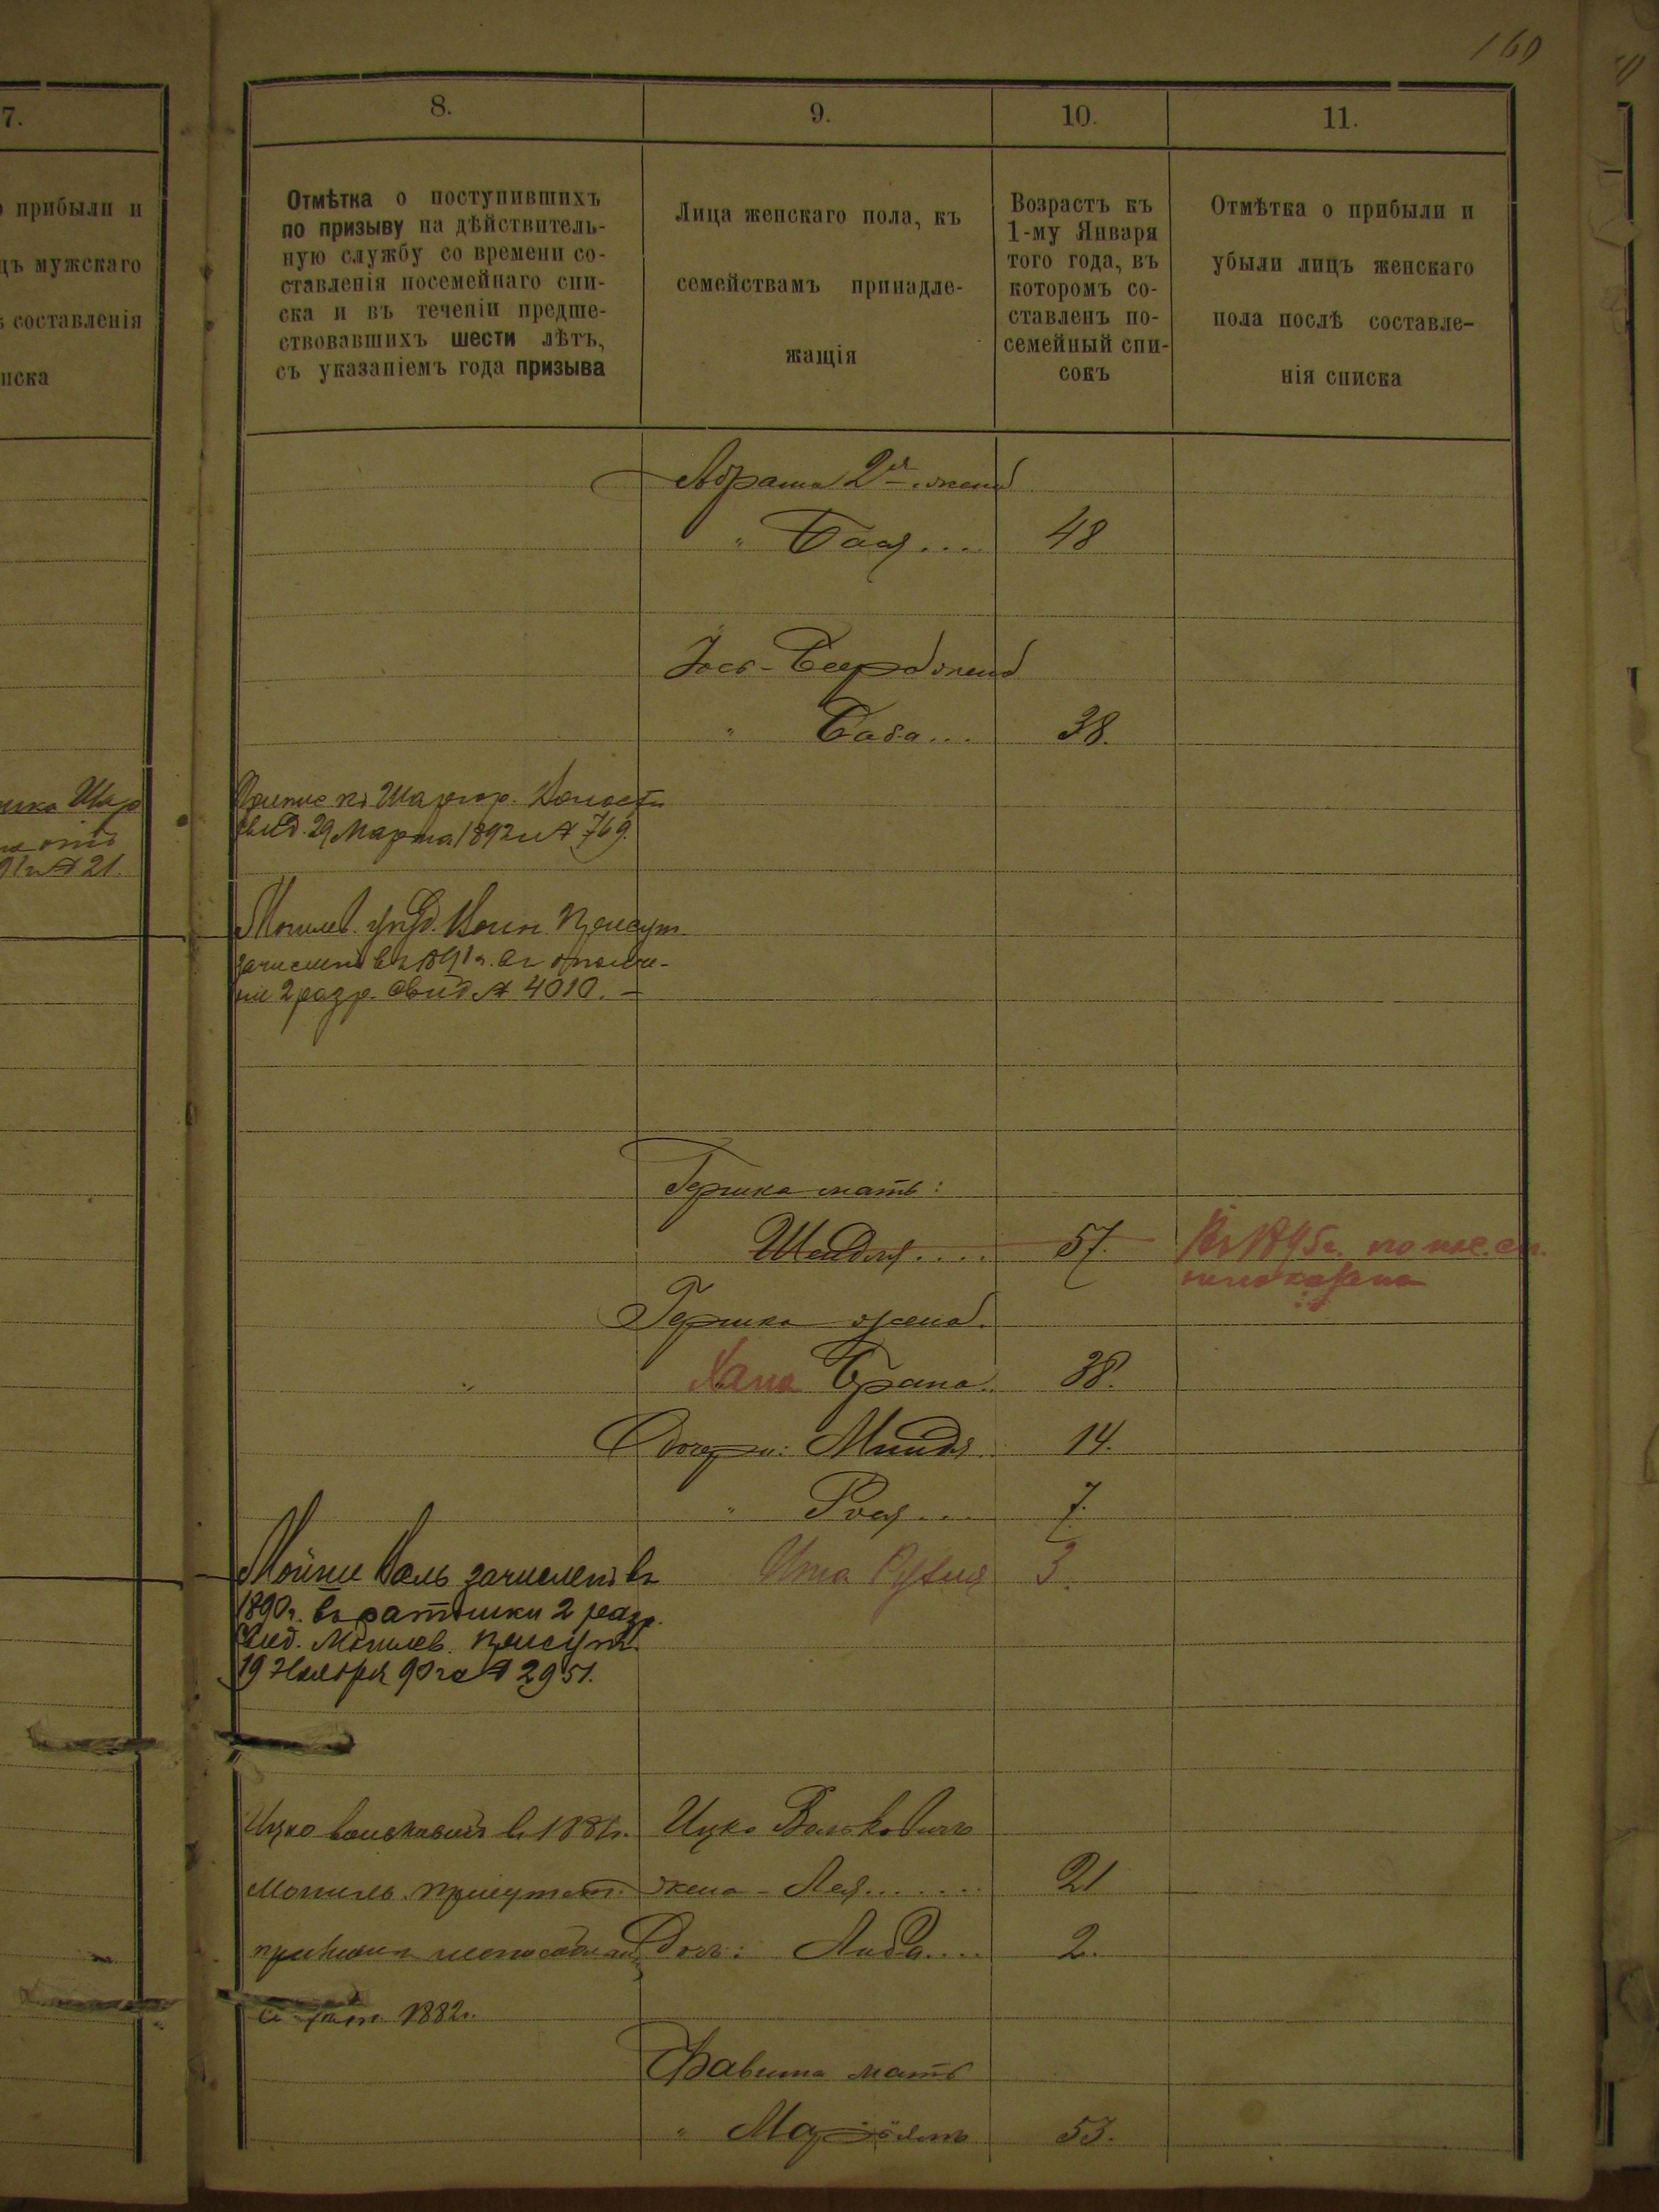 160
7.
о прибыли и
цъ мужскаго
ѣ составленія
писка
8.
9.
10.
11.
Отмѣтка о поступившихъ
по призыву на дѣйствитель-
ную службу со времени со-
ставленія посемейнаго спи-
ска и въ теченіи предше-
ствовавшихъ шести лѣтъ,
съ указаніемъ года призыва
Лица женскаго пола, къ
семействамъ принадле-
жащія
Возрастъ къ
1-му Января
того года, въ
которомъ со-
ставленъ по-
семейный спи-
сокъ
Отмѣтка о прибыли и
убыли лицъ женскаго
пола послѣ составле-
нія списка
Абрама 2я жена
" Бася.... 48
Жена
" Баба... 38.
Шар
21.
Припис къ Шаргор. Волости
свид. 29 Марта 1892 г № 769.
Могилев. уѣзд. Воин. Присут.
зачисленъ въ 1891 г. въ ополче-
ніе 2 разр. свид № 4010. –
Гершка мать:
Шейдля.... 57. Въ 1895 г. по пос. сп.
не показана
Гершка жена.
Хана Брана.. 38.
Дочери: Миндя. 14.
" Рося... 7.
Ита 3.
Мойше Воль зачисленъ въ
1890 г. въ ратники 2 разр.
Свид. Могилев. присут.
19 Ноября 90 г № 2951.
Ицко въ 1881 г. Ицко Вольковичъ
Могилев. присутст. жена - Лея....... 21
признан неспособнымъ Дочь: Люба.... 2.
1882 г.
мать
" Маріямъ 53.